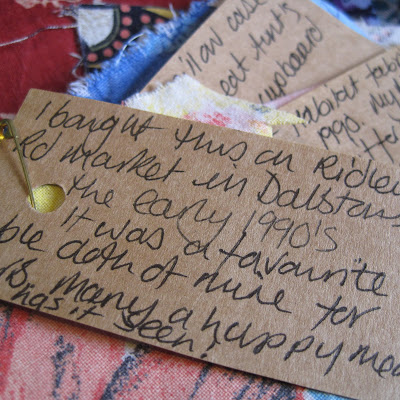 I bought this on Ridley
Rd market in Dalston
the early 1990's
It was a favourite
ble cloth of mine for
many a happy mea
has it seen!
case
eat Aunt's
cupboard
Habitat fab
1990. My